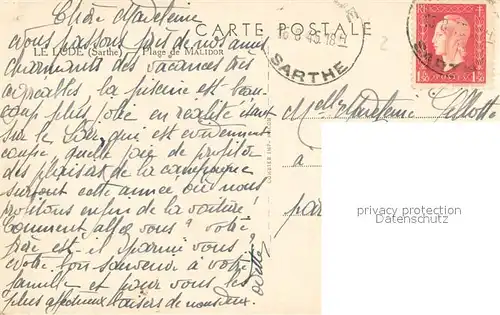 Chère Madeleine
CARTE POSTALE
LE LUDE (Sarthe) Plage de MALIDOR
Nous passons près de nos amis
charmants des vacances très
agréables la piscine est beau-
coup plus jolie en réalité étant
sur le Loir, qui est évidemment
quelle joie de profiter
des plaisirs de la campagne
surtout cette année où nous
profitons enfin de la voiture!
Comment allez vous? Votre
frère est-il parmi vous
Bon souvenir à votre
famille et pour vous les
plus affectueux baisers de nous deux.
16 8 45
SARTHE
Melle Madeleine
à
par
privacy protection
2